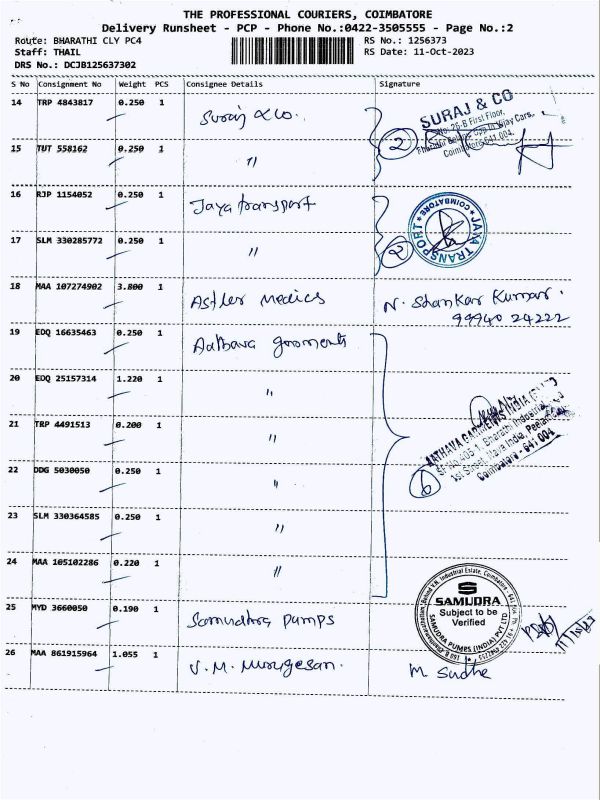 THE PROFESSIONAL COURIERS, COIMBATORE
Delivery Runsheet - PCP - Phone No.:0422-3505555 - Page No.:2
Route: BHARATHI CLY PC4 RS No.: 1256373
Staff: THAIL RS Date: 11-Oct-2023
DRS No.: DCJB125637302
S No Consignment No Weight PCS Consignee Details Signature
14 TRP 4843817 0.250 1 Suraj & Co.
SURAJ & CO
First Floor,
Vijay Cars,
Coimbatore-641 004.
2
15 TUT 558162 0.250 1 "
16 RJP 1154052 0.250 1 Jaya transport
JAYA TRANSPORT COIMBATORE
2
17 SLM 330285772 0.250 1 "
18 MAA 107274902 3.800 1 Astler Medics N. Shankar Kumar.
99940 24222
19 EDQ 16635463 0.250 1 Aathava garments
20 EDQ 25157314 1.220 1 "
21 TRP 4491513 0.200 1 "
AATHAVA GARMENTS INDIA (P) LTD
1st Street, Mara India,
Coimbatore - 641 004
6
22 DDG 5030050 0.250 1 "
23 SLM 330364585 0.250 1 "
24 MAA 105102286 0.220 1 "
25 MYD 3660050 0.190 1 Samudhra Pumps
SAMUDRA
Subject to be
Verified
SAMUDRA PUMPS (INDIA) PVT LTD
26 MAA 861915964 1.055 1 V. M. Murugesan. M. Sudhe